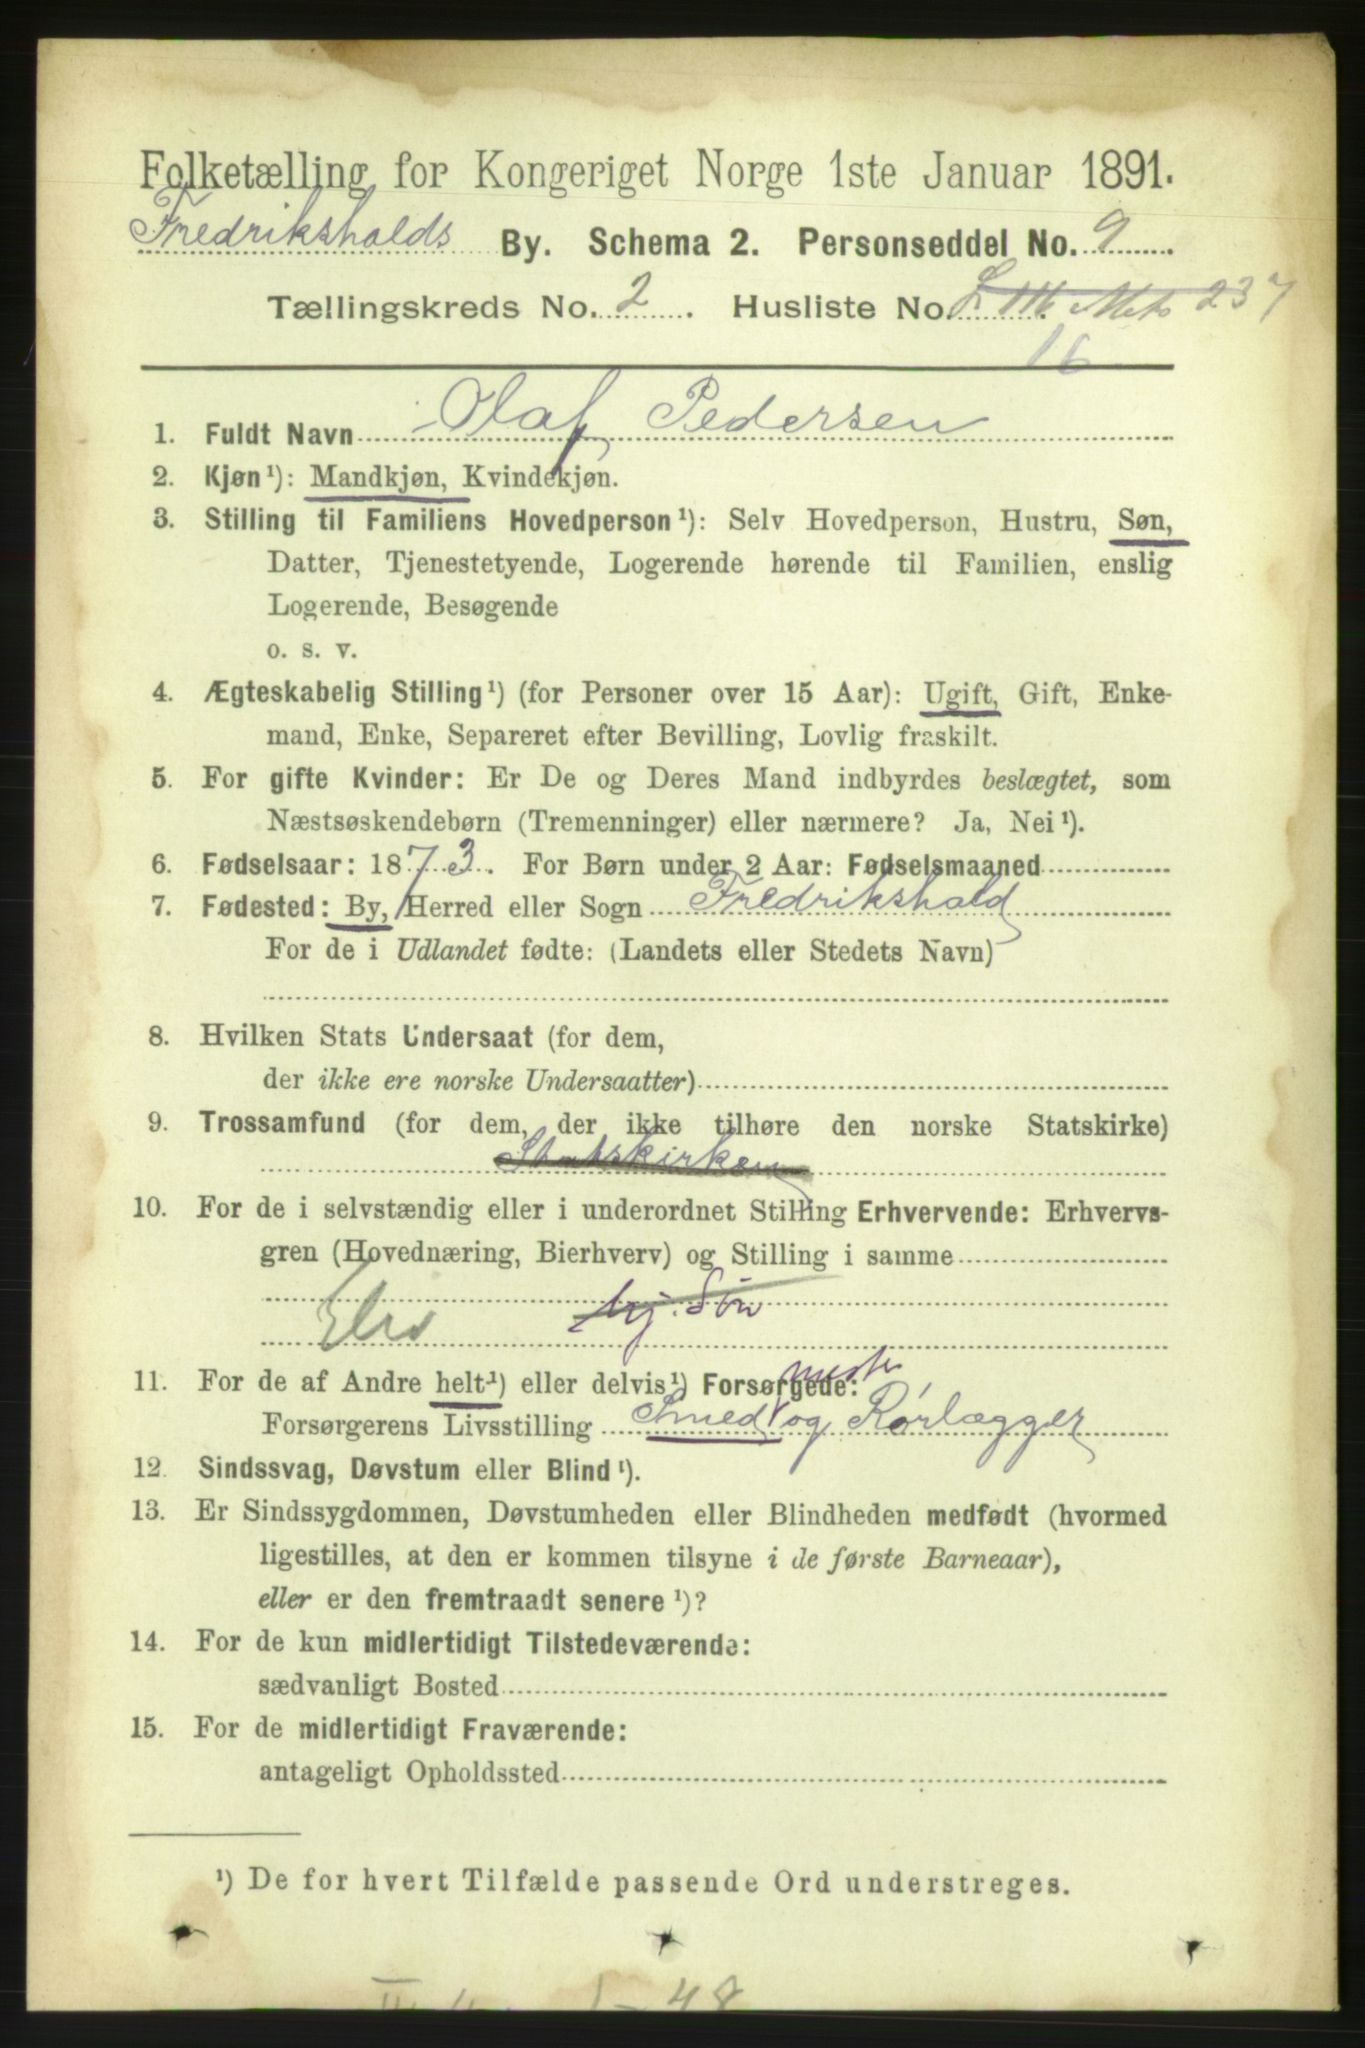 Folketælling for Kongeriget Norge 1ste Januar 1891.
Fredriksholds By. Schema 2. Personseddel No. 9
Tællingskreds No. 2. Husliste No. 237
16
1. Fuldt Navn Olaf Pedersen
2. Kjøn¹): Mandkjøn, Kvindekjøn.
3. Stilling til Familiens Hovedperson¹): Selv Hovedperson, Hustru, Søn,
Datter, Tjenestetyende, Logerende hørende til Familien, enslig
Logerende, Besøgende
o. s. v.
4. Ægteskabelig Stilling¹) (for Personer over 15 Aar): Ugift, Gift, Enke-
mand, Enke, Separeret efter Bevilling, Lovlig fraskilt.
5. For gifte Kvinder: Er De og Deres Mand indbyrdes beslægtet, som
Næstsøskendebørn (Tremenninger) eller nærmere? Ja, Nei¹).
6. Fødselsaar: 1873. For Børn under 2 Aar: Fødselsmaaned
7. Fødested: By, Herred eller Sogn Fredrikshald
For de i Udlandet fødte: (Landets eller Stedets Navn)
8. Hvilken Stats Undersaat (for dem,
der ikke ere norske Undersaatter)
9. Trossamfund (for dem, der ikke tilhøre den norske Statskirke)
Statskirken
10. For de i selvstændig eller i underordnet Stilling Erhvervende: Erhvervs-
gren (Hovednæring, Bierhverv) og Stilling i samme
Elev hj. Søn
11. For de af Andre helt¹) eller delvis¹) Forsørgede:
mester
Forsørgerens Livsstilling Smed og Rørlægger
12. Sindssvag, Døvstum eller Blind¹).
13. Er Sindssygdommen, Døvstumheden eller Blindheden medfødt (hvormed
ligestilles, at den er kommen tilsyne i de første Barneaar),
eller er den fremtraadt senere¹)?
14. For de kun midlertidigt Tilstedeværende:
sædvanligt Bosted
15. For de midlertidigt Fraværende:
antageligt Opholdssted
¹) De for hvert Tilfælde passende Ord understreges.